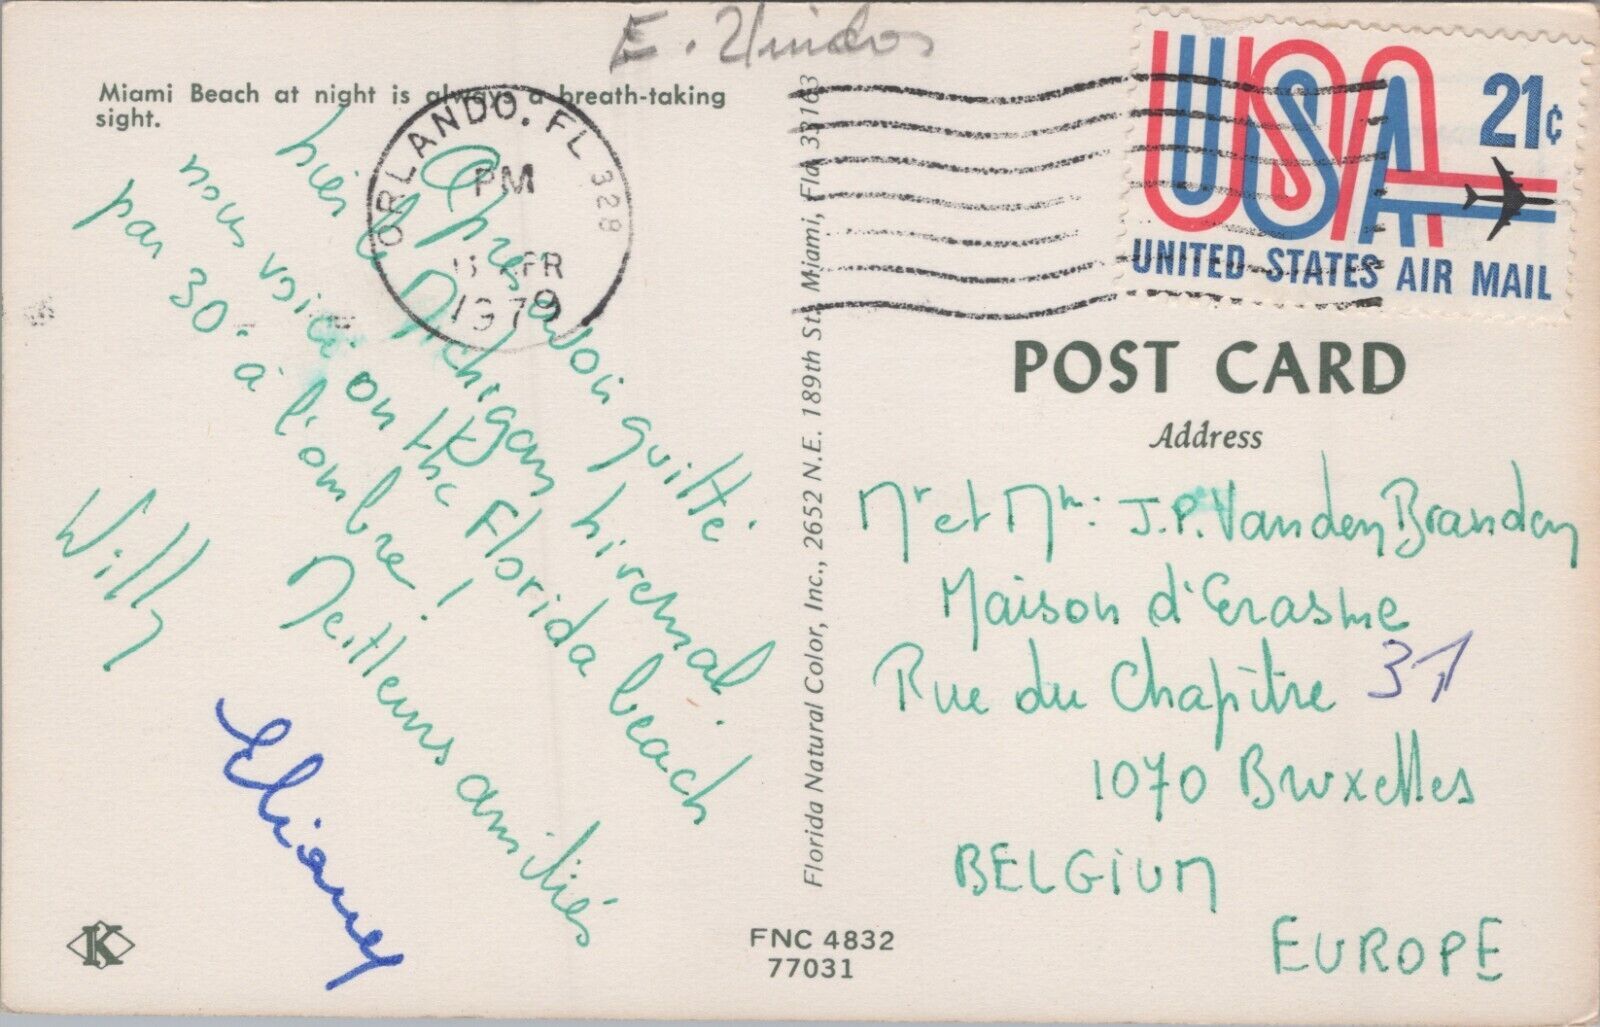 E. Unidos
Miami Beach at night is always a breath-taking
sight.
Après avoir quitté
hier le Michigan hivernal
nous voici on the Florida beach
par 30° à l'ombre !
Meilleurs amitiés
Willy
Eliane
ORLANDO, FL 328
PM
APR
1979
USA
21¢
UNITED STATES AIR MAIL
Florida Natural Color, Inc., 2652 N.E. 189th St. Miami, Fla. 33163
POST CARD
Address
Mr et Mm: J.P. Vanden Branden
Maison d'Erasme
Rue du Chapitre 31
1070 Bruxelles
BELGIUM
EUROPE
K
FNC 4832
77031